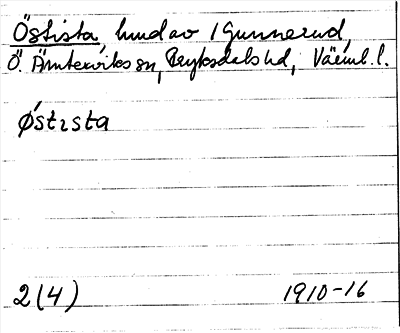 Östista, hmd av 1 Gunnerud,
Ö. Ämterviks sn, Fryksdals hd, Värml. l.
Østɩsta
2(4) 1910-16